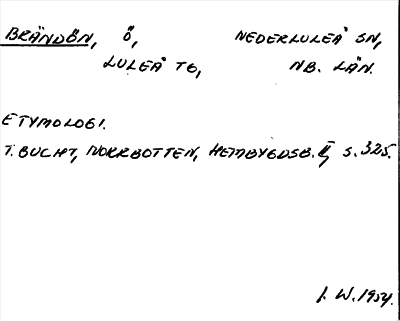 BRÄNDÖN, Ö, NEDERLULEÅ SN,
LULEÅ TG, NB. LÄN.
ETYMOLOGI.
T. BUCHT, NORRBOTTEN, HEMBYGDSB. II, S. 325.
J. W. 1954.